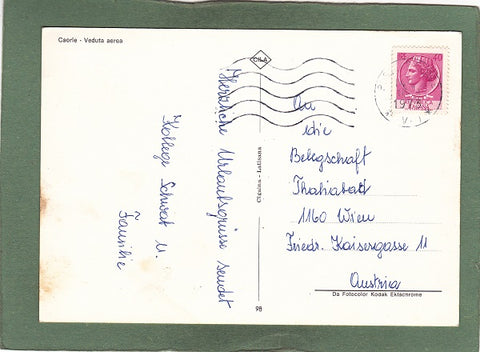 Caorle - Veduta aerea
CILA
Herzliche Urlaubsgrüsse sendet
Kollege Schwat u.
Familie
Cipsina - Latisana
98
40
An
die
Belegschaft
Thaliabad
1160 Wien
Friedr. Kaisergasse 11
Austria
Da Fotocolor Kodak Ektachrome